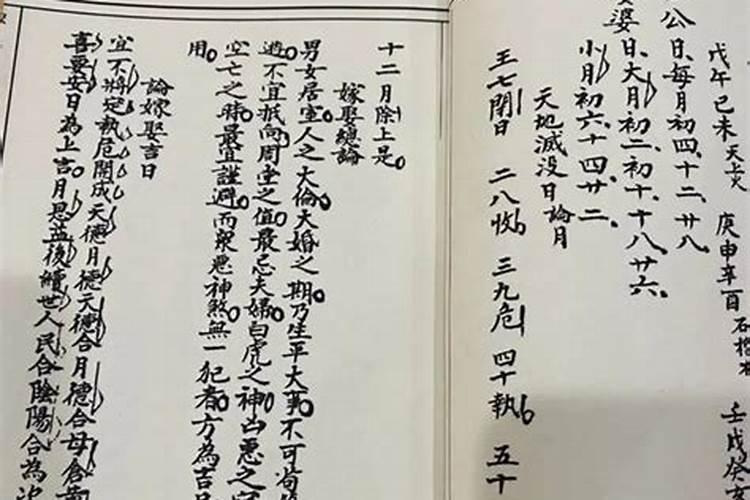 戊午己未天上火 庚申辛酉石榴木 壬戌癸
公日每月初四十二廿八
婆日大月初二初十十八廿六
小月初六十四廿二
天地滅没日論月
王七閉日 二八收 三九危 四十執 五十
十二月除上是
嫁娶總論
男女居室人之大倫大婚之期乃生平大事不可苟
避不宜抵向周堂之值最忌夫婦白虎之神凶悪之
空亡之時最宜謹避而衆悪神煞無一犯者方為吉
用
論嫁娶吉日
宜不將定執危開成天德月德天德合月德合母倉
喜要安日為上吉月恩益後續世人民合陰陽合為